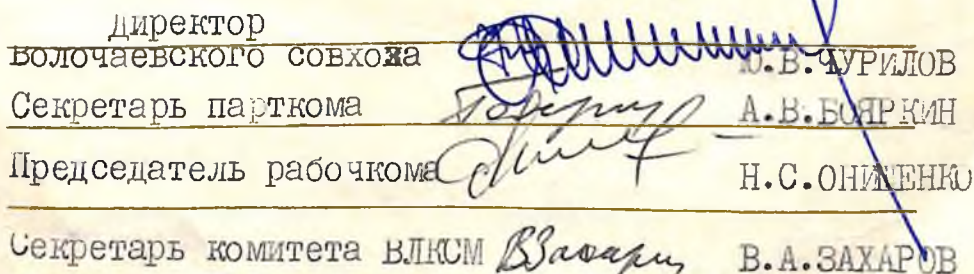 Директор
Волочаевского совхоза Ю.В.ЧУРИЛОВ
Секретарь парткома А.В.БОЯРКИН
Председатель рабочкома Н.С.ОНИЩЕНКО
Секретарь комитета ВЛКСМ В.А.ЗАХАРОВ